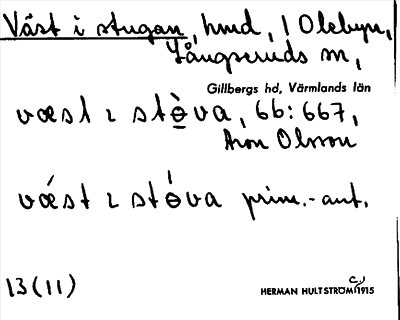 Väst i stugan, hmd, i Olebyn,
Långseruds sn,
Gillbergs hd, Värmlands län
væst ɩ stɵ̀va, 66:667,
Aron Olsson
vǽst ɩ stɵ́va prim.-ant.
13(11)
HERMAN HULTSTRÖM 1915